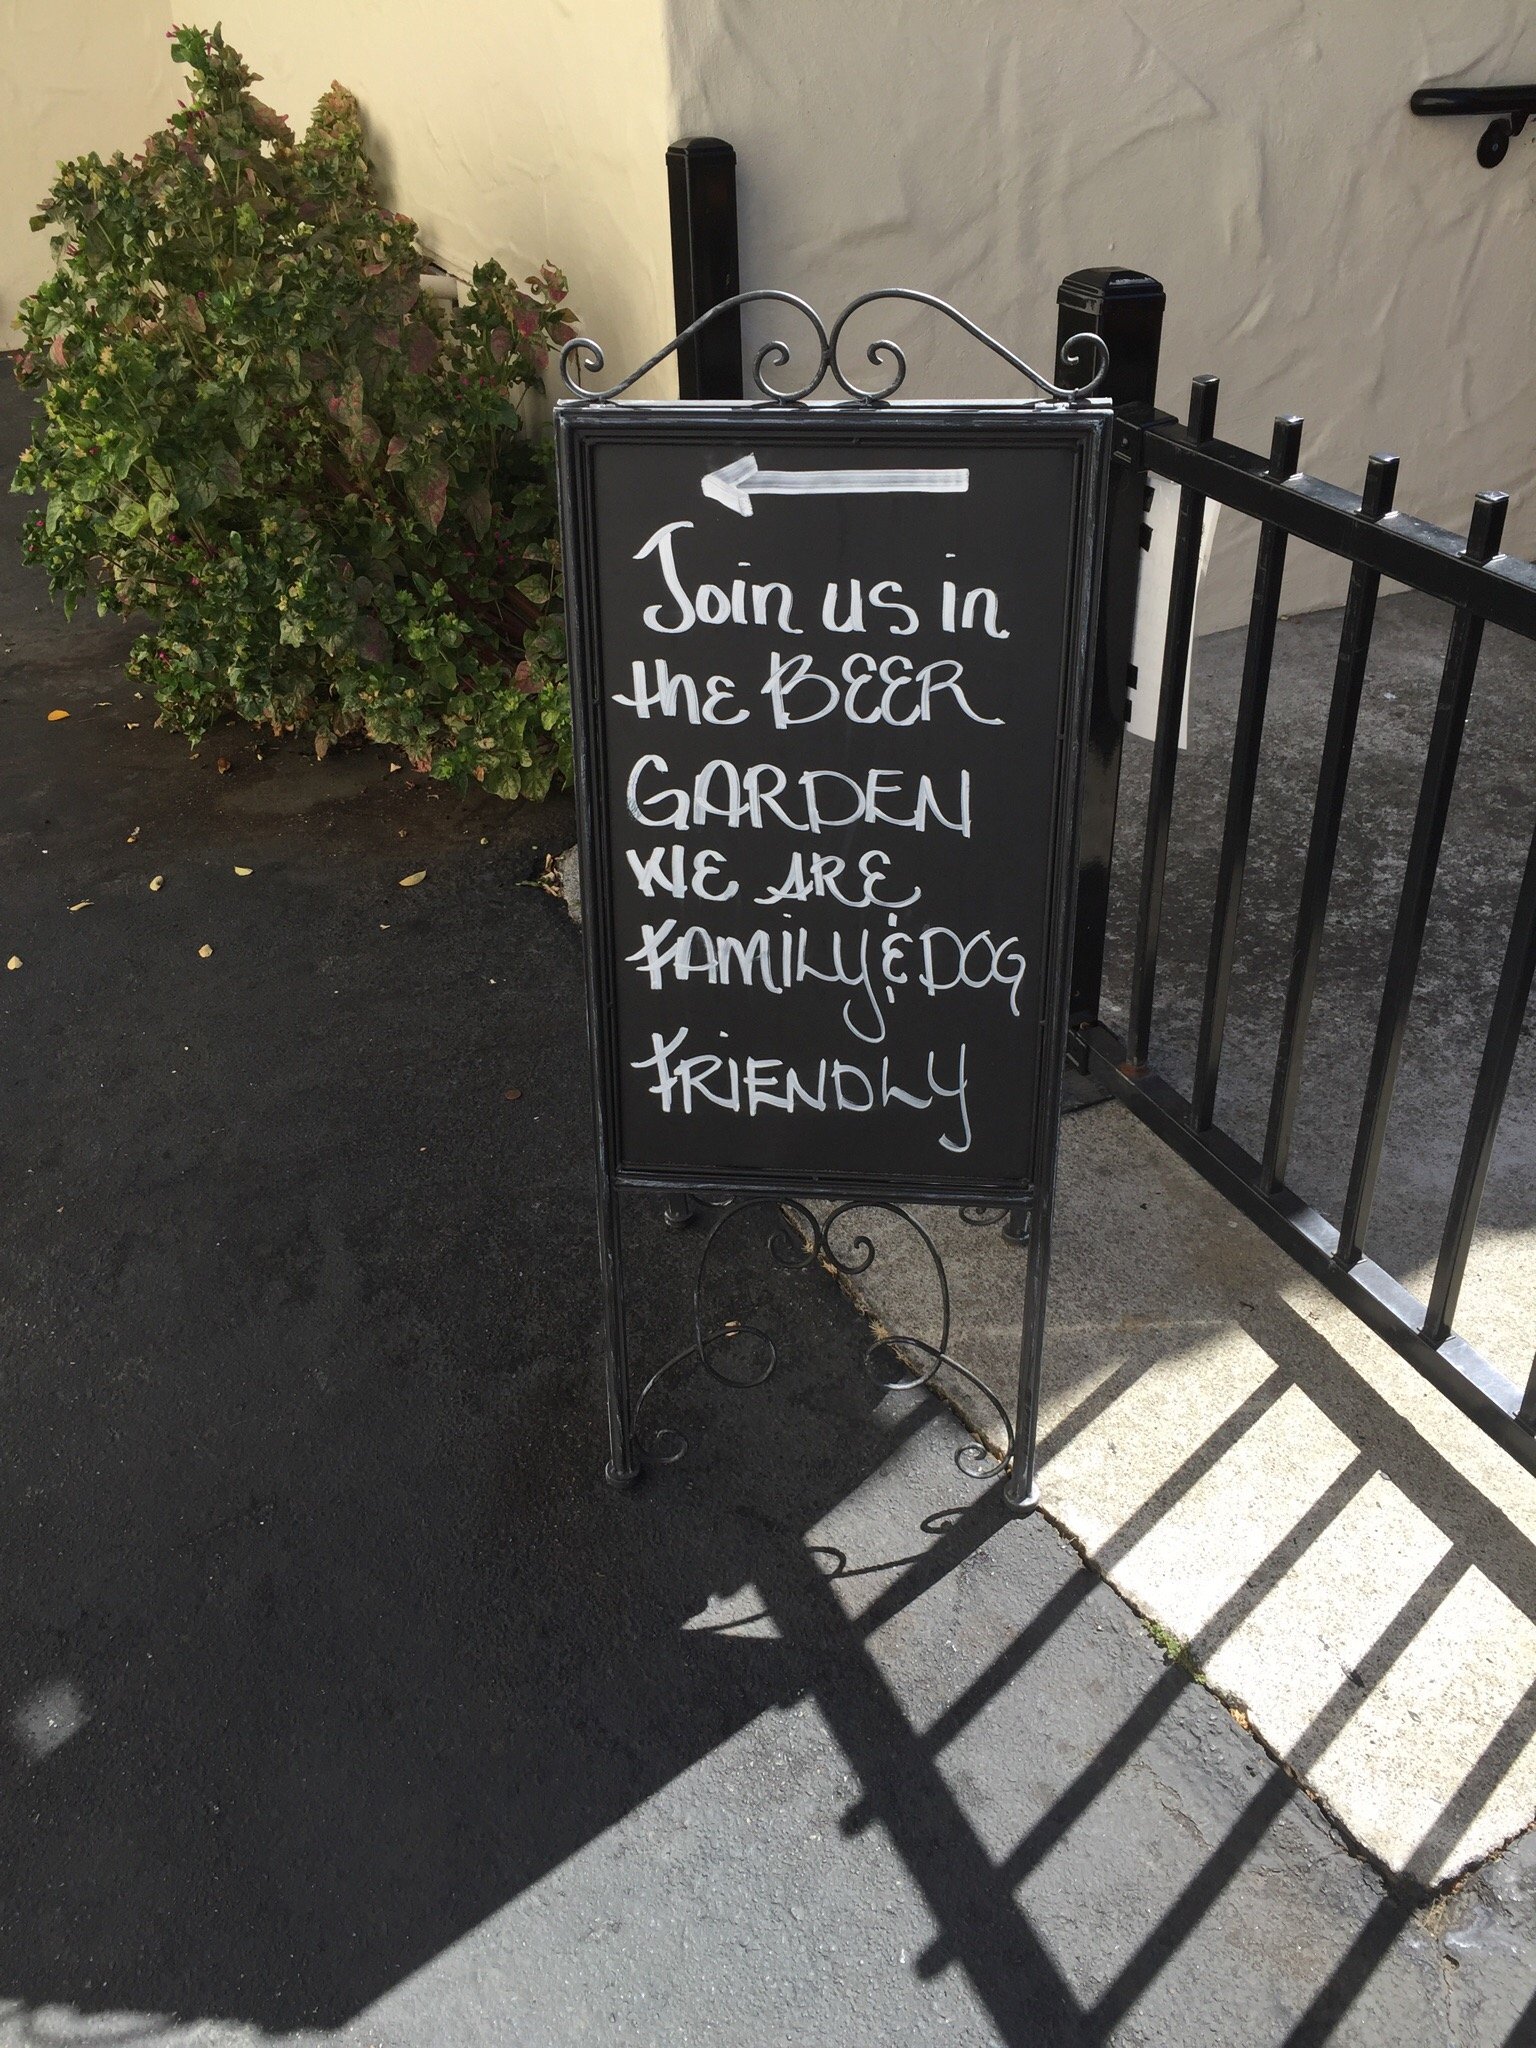 Join us in
the BEER
GARDEN
WE ARE
FAMiLY & DOG
FRiENDLY